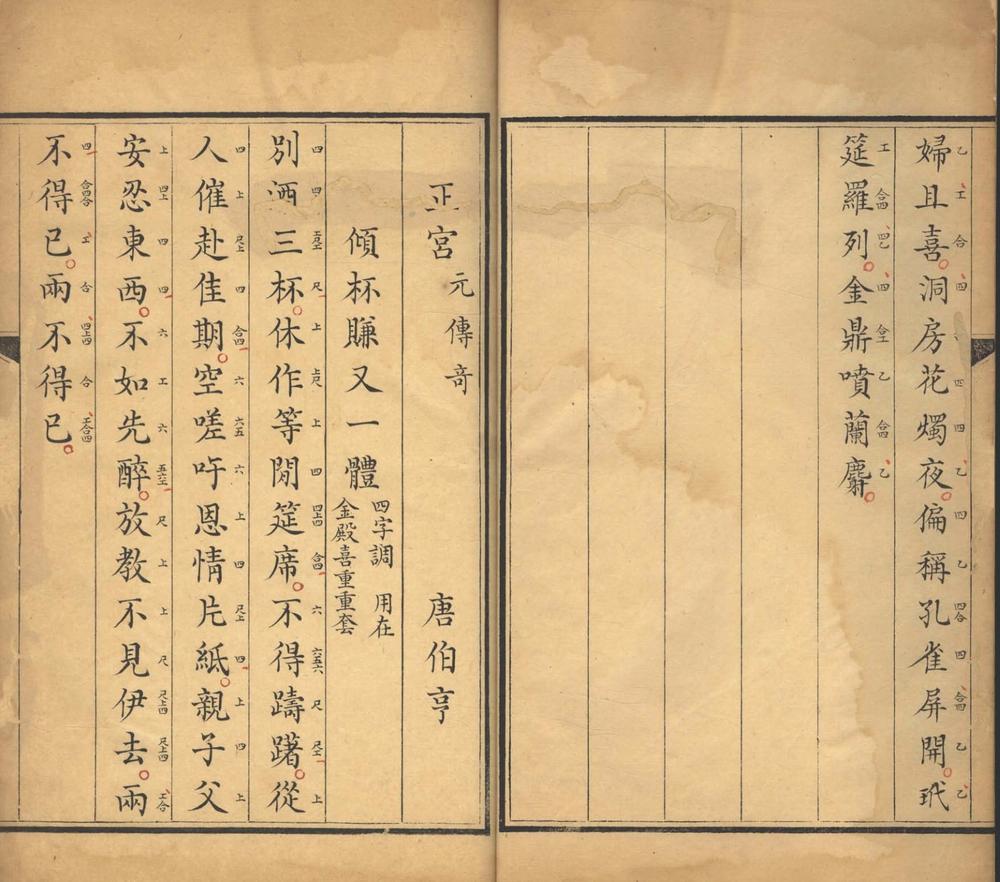 婦且喜。洞房花燭夜。偏稱孔雀屏開。玳
筵羅列。金鼎噴蘭麝。
正宮 元傳奇 唐伯亨
傾杯賺又一體 四字調 用在
金殿喜重重套
別洒三杯。休作等閒筵席。不得躊躇。從
人催赴佳期。空嗟吁恩情片紙。親子父
安忍東西。不如先醉。放教不見伊去。兩
不得已。兩不得已。